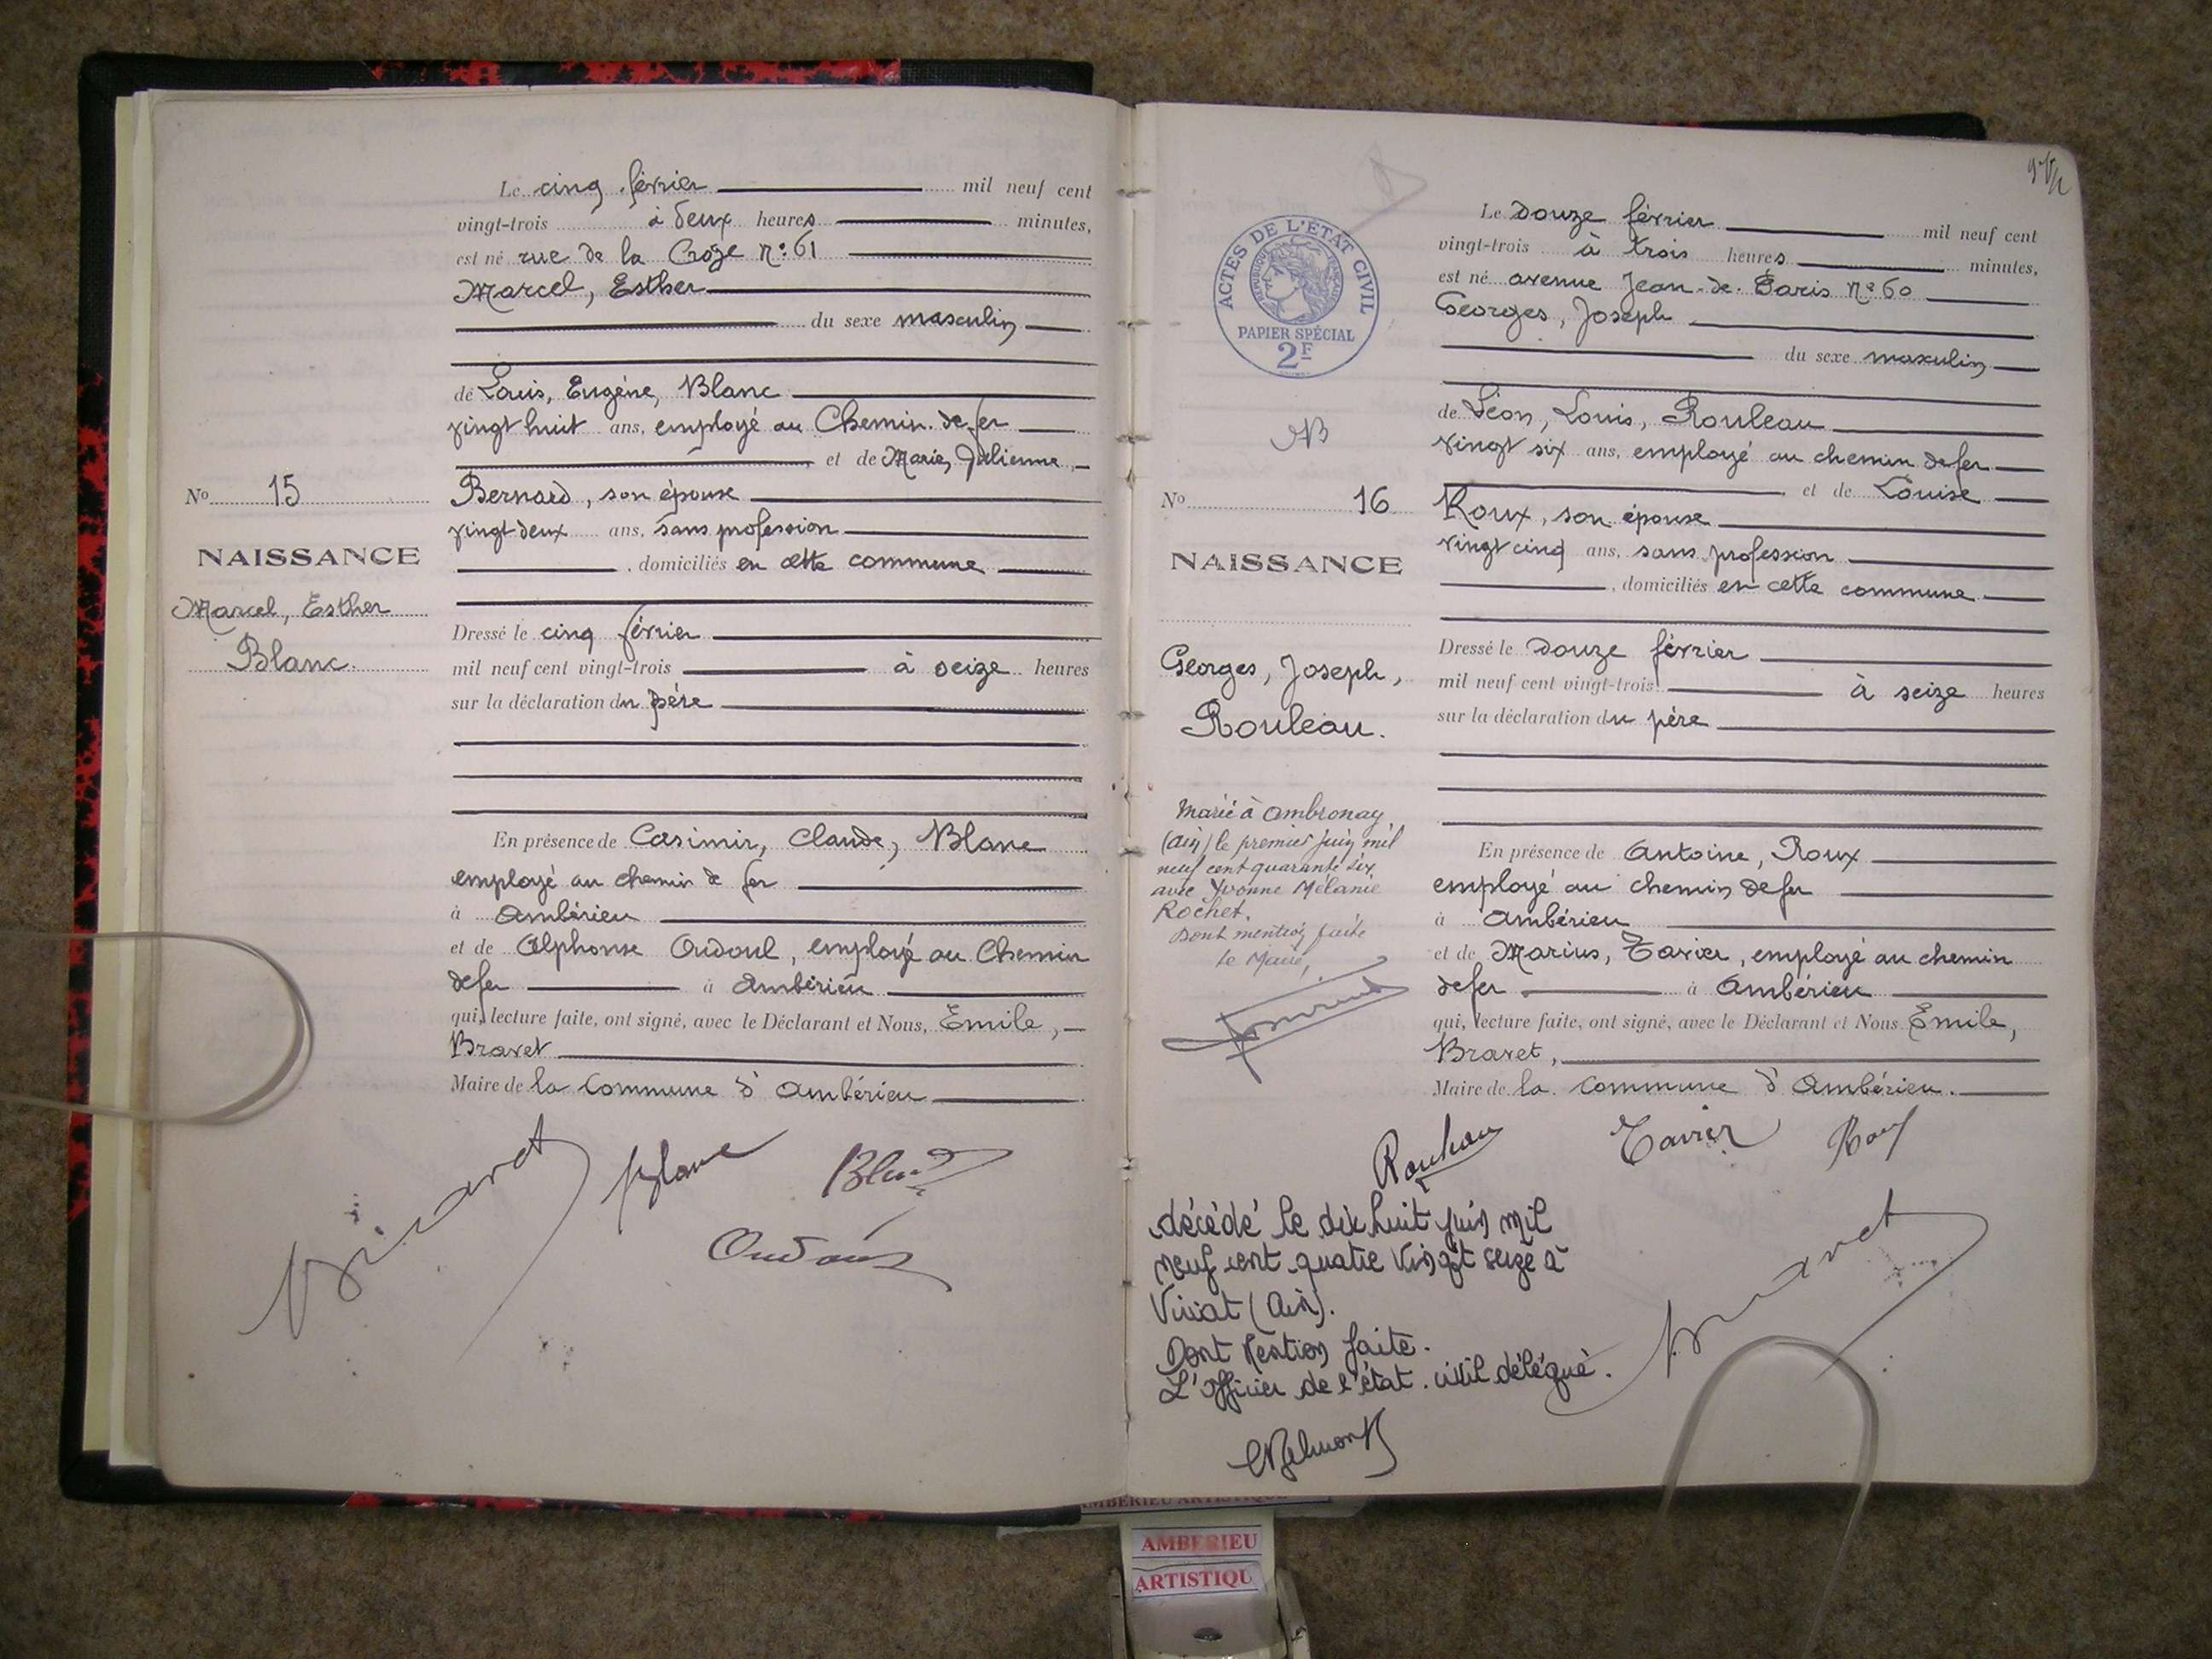 Le cinq février mil neuf cent
vingt-trois à deux heures minutes,
est né rue de la Croze n° 61
Marcel, Esther
du sexe masculin
de Louis, Eugène, Blanc
vingt huit ans, employé au Chemin de fer
et de Marie, Julienne
Bernard, son épouse
vingt deux ans, sans profession
, domiciliés en cette commune
Dressé le cinq février
mil neuf cent vingt-trois à seize heures
sur la déclaration du père
En présence de Casimir, Claude, Blanc
employé au chemin de fer
à Ambérieu
et de Alphonse Oudoul, employé au Chemin
de fer à Ambérieu
qui, lecture faite, ont signé, avec le Déclarant et Nous, Emile,
Bravet
Maire de la Commune d'Ambérieu
No 15
NAISSANCE
Marcel, Esther
Blanc
Bravet Blanc Blanc
ACTES DE L'ÉTAT CIVIL
RÉPUBLIQUE FRANÇAISE
PAPIER SPÉCIAL
2F
No 16
NAISSANCE
Georges, Joseph,
Rouleau.
Marié à Ambronay
(Ain) le premier juin mil
neuf cent quarante six
avec Yvonne Mélanie
Rochet.
Dont mention faite
Le Maire,
Le douze février mil neuf cent
vingt-trois à trois heures minutes,
est né avenue Jean-de-Paris n° 60
Georges, Joseph
du sexe masculin
de Léon, Louis, Rouleau
vingt six ans, employé au chemin de fer
et de Louise
Roux, son épouse
vingt cinq ans, sans profession
, domiciliés en cette commune
Dressé le douze février
mil neuf cent vingt-trois à seize heures
sur la déclaration du père
En présence de Antoine, Roux
employé au chemin de fer
à Ambérieu
et de Marius, Tavier, employé au chemin
de fer à Ambérieu
qui, lecture faite, ont signé, avec le Déclarant et Nous Emile,
Bravet,
Maire de la Commune d'Ambérieu.
Rouleau Tavier Roux
décédé le dix huit juin mil
neuf cent quatre vingt seize à
Viriat (Ain).
Dont Mention faite.
L'officier de l'état civil délégué.
Bravet
AMBERIEU ARTISTIQUE
AMBERIEU
ARTISTIQU